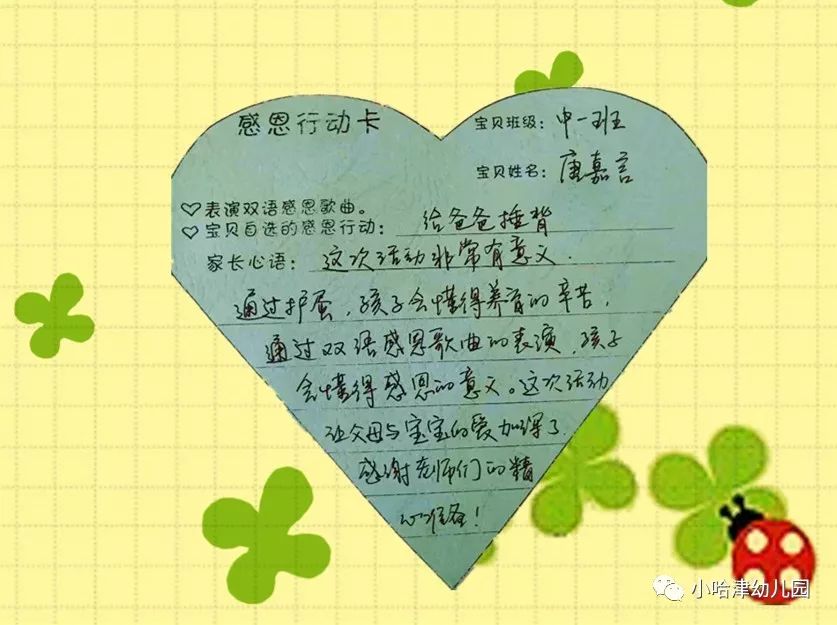 感恩行动卡
宝贝班级：中一班
宝贝姓名：唐嘉言
♡表演双语感恩歌曲。
♡宝贝自选的感恩行动：给爸爸捶背
家长心语：这次活动非常有意义.
通过护蛋，孩子会懂得养育的辛苦，
通过双语感恩歌曲的表演，孩子
会懂得感恩的意义。这次活动
让父母与宝宝的爱加深了.
感谢老师们的精
心准备！
小哈津幼儿园